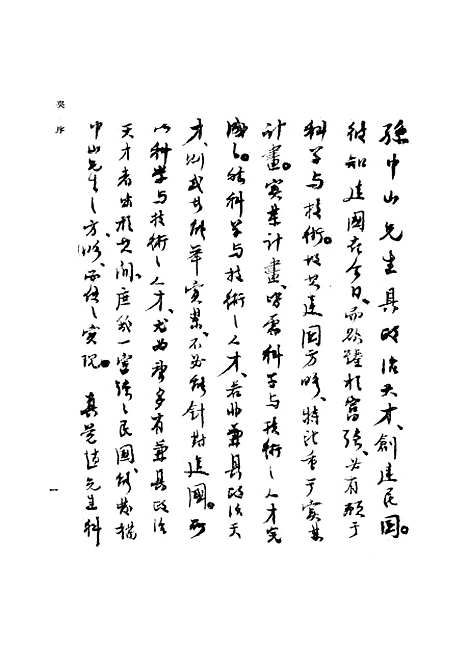 吳序
孫中山先生具政治天才、創建民國。
彼知建國在今日、而欲躋於富強、必有賴于
科学与技術。故其建國方略、特注重于實業
計畫。實業計畫、皆需科学与技術之人才完
成之。然科学与技術之人才、若非兼具政治天
才、則或其能華實業、不必能針對建國。所
以科学与技術之人才、尤必多有兼具政治
天才者出於其間、庶幾一富強之民國、能
中山先生之方略、而使之實現。真是 先生科
一